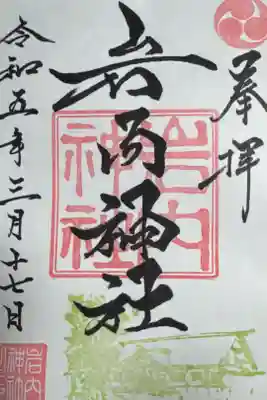 奉拝
岩内神社
岩内
神社
令和五年三月十七日
岩内
神社